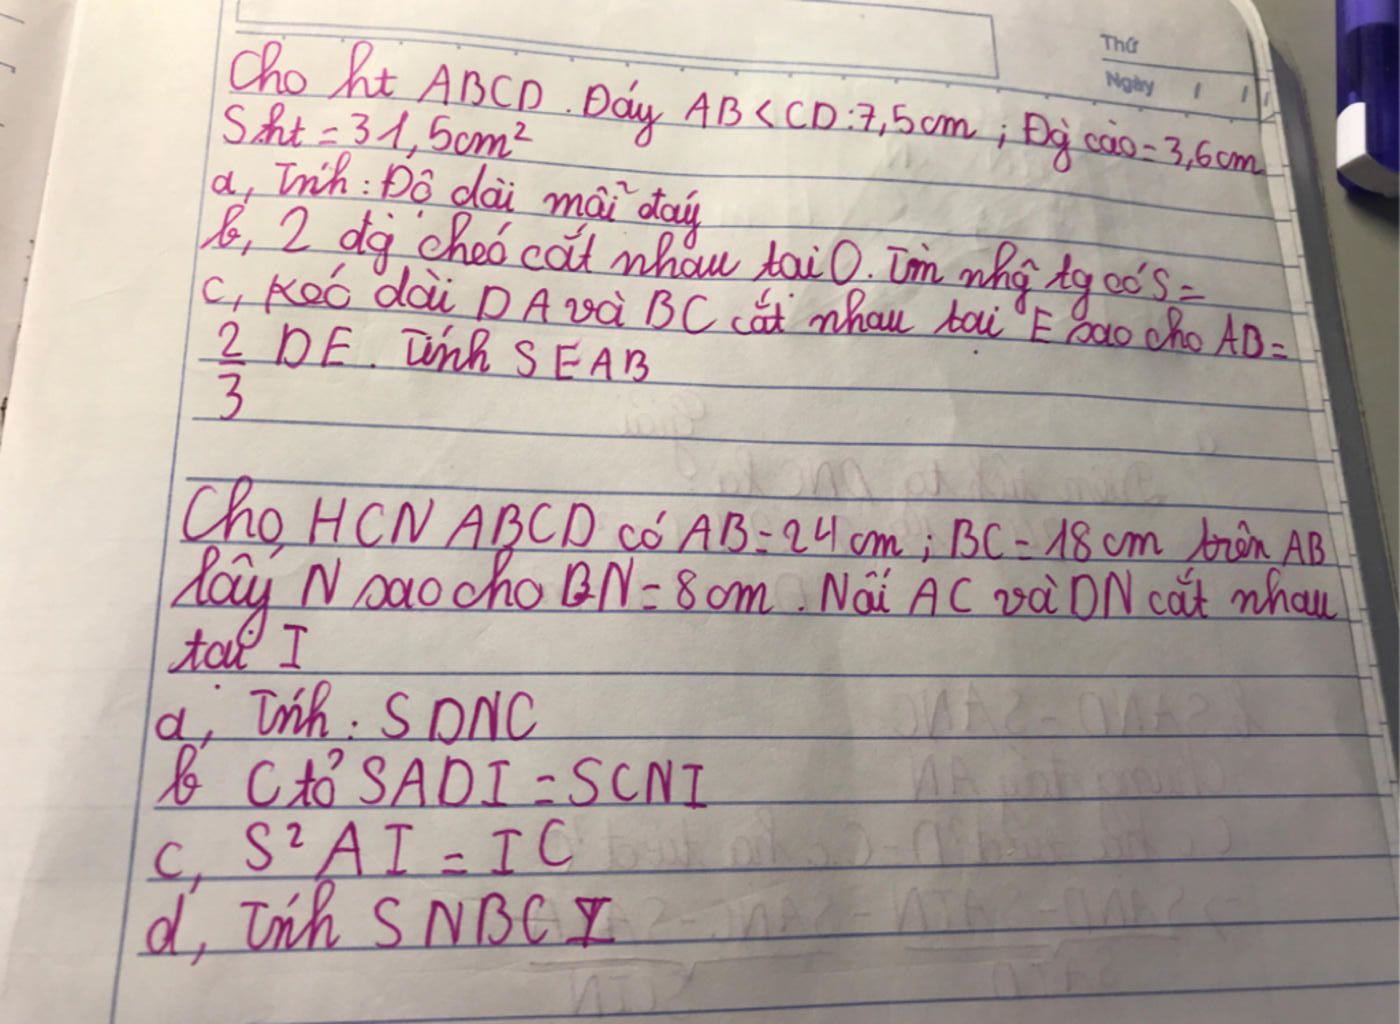 Thứ
Ngày / /
Cho ht ABCD. Đáy AB < CD: 7,5cm; Đg cao = 3,6cm
Sht = 31,5cm²
a, Tính: Độ dài mỗi đáy
b, 2 đg chéo cắt nhau tại O. Tìm nhg tg có S =
c, Kéo dài DA và BC cắt nhau tại E sao cho AD =
2/3 DE. Tính SEAB
Cho HCN ABCD có AB = 24cm; BC = 18cm trên AB
lấy N sao cho BN = 8cm. Nối AC và DN cắt nhau
tại I
a, Tính: SDNC
b C tỏ SADI = SCNI
c, S² AI = IC
d, Tính SNBCI